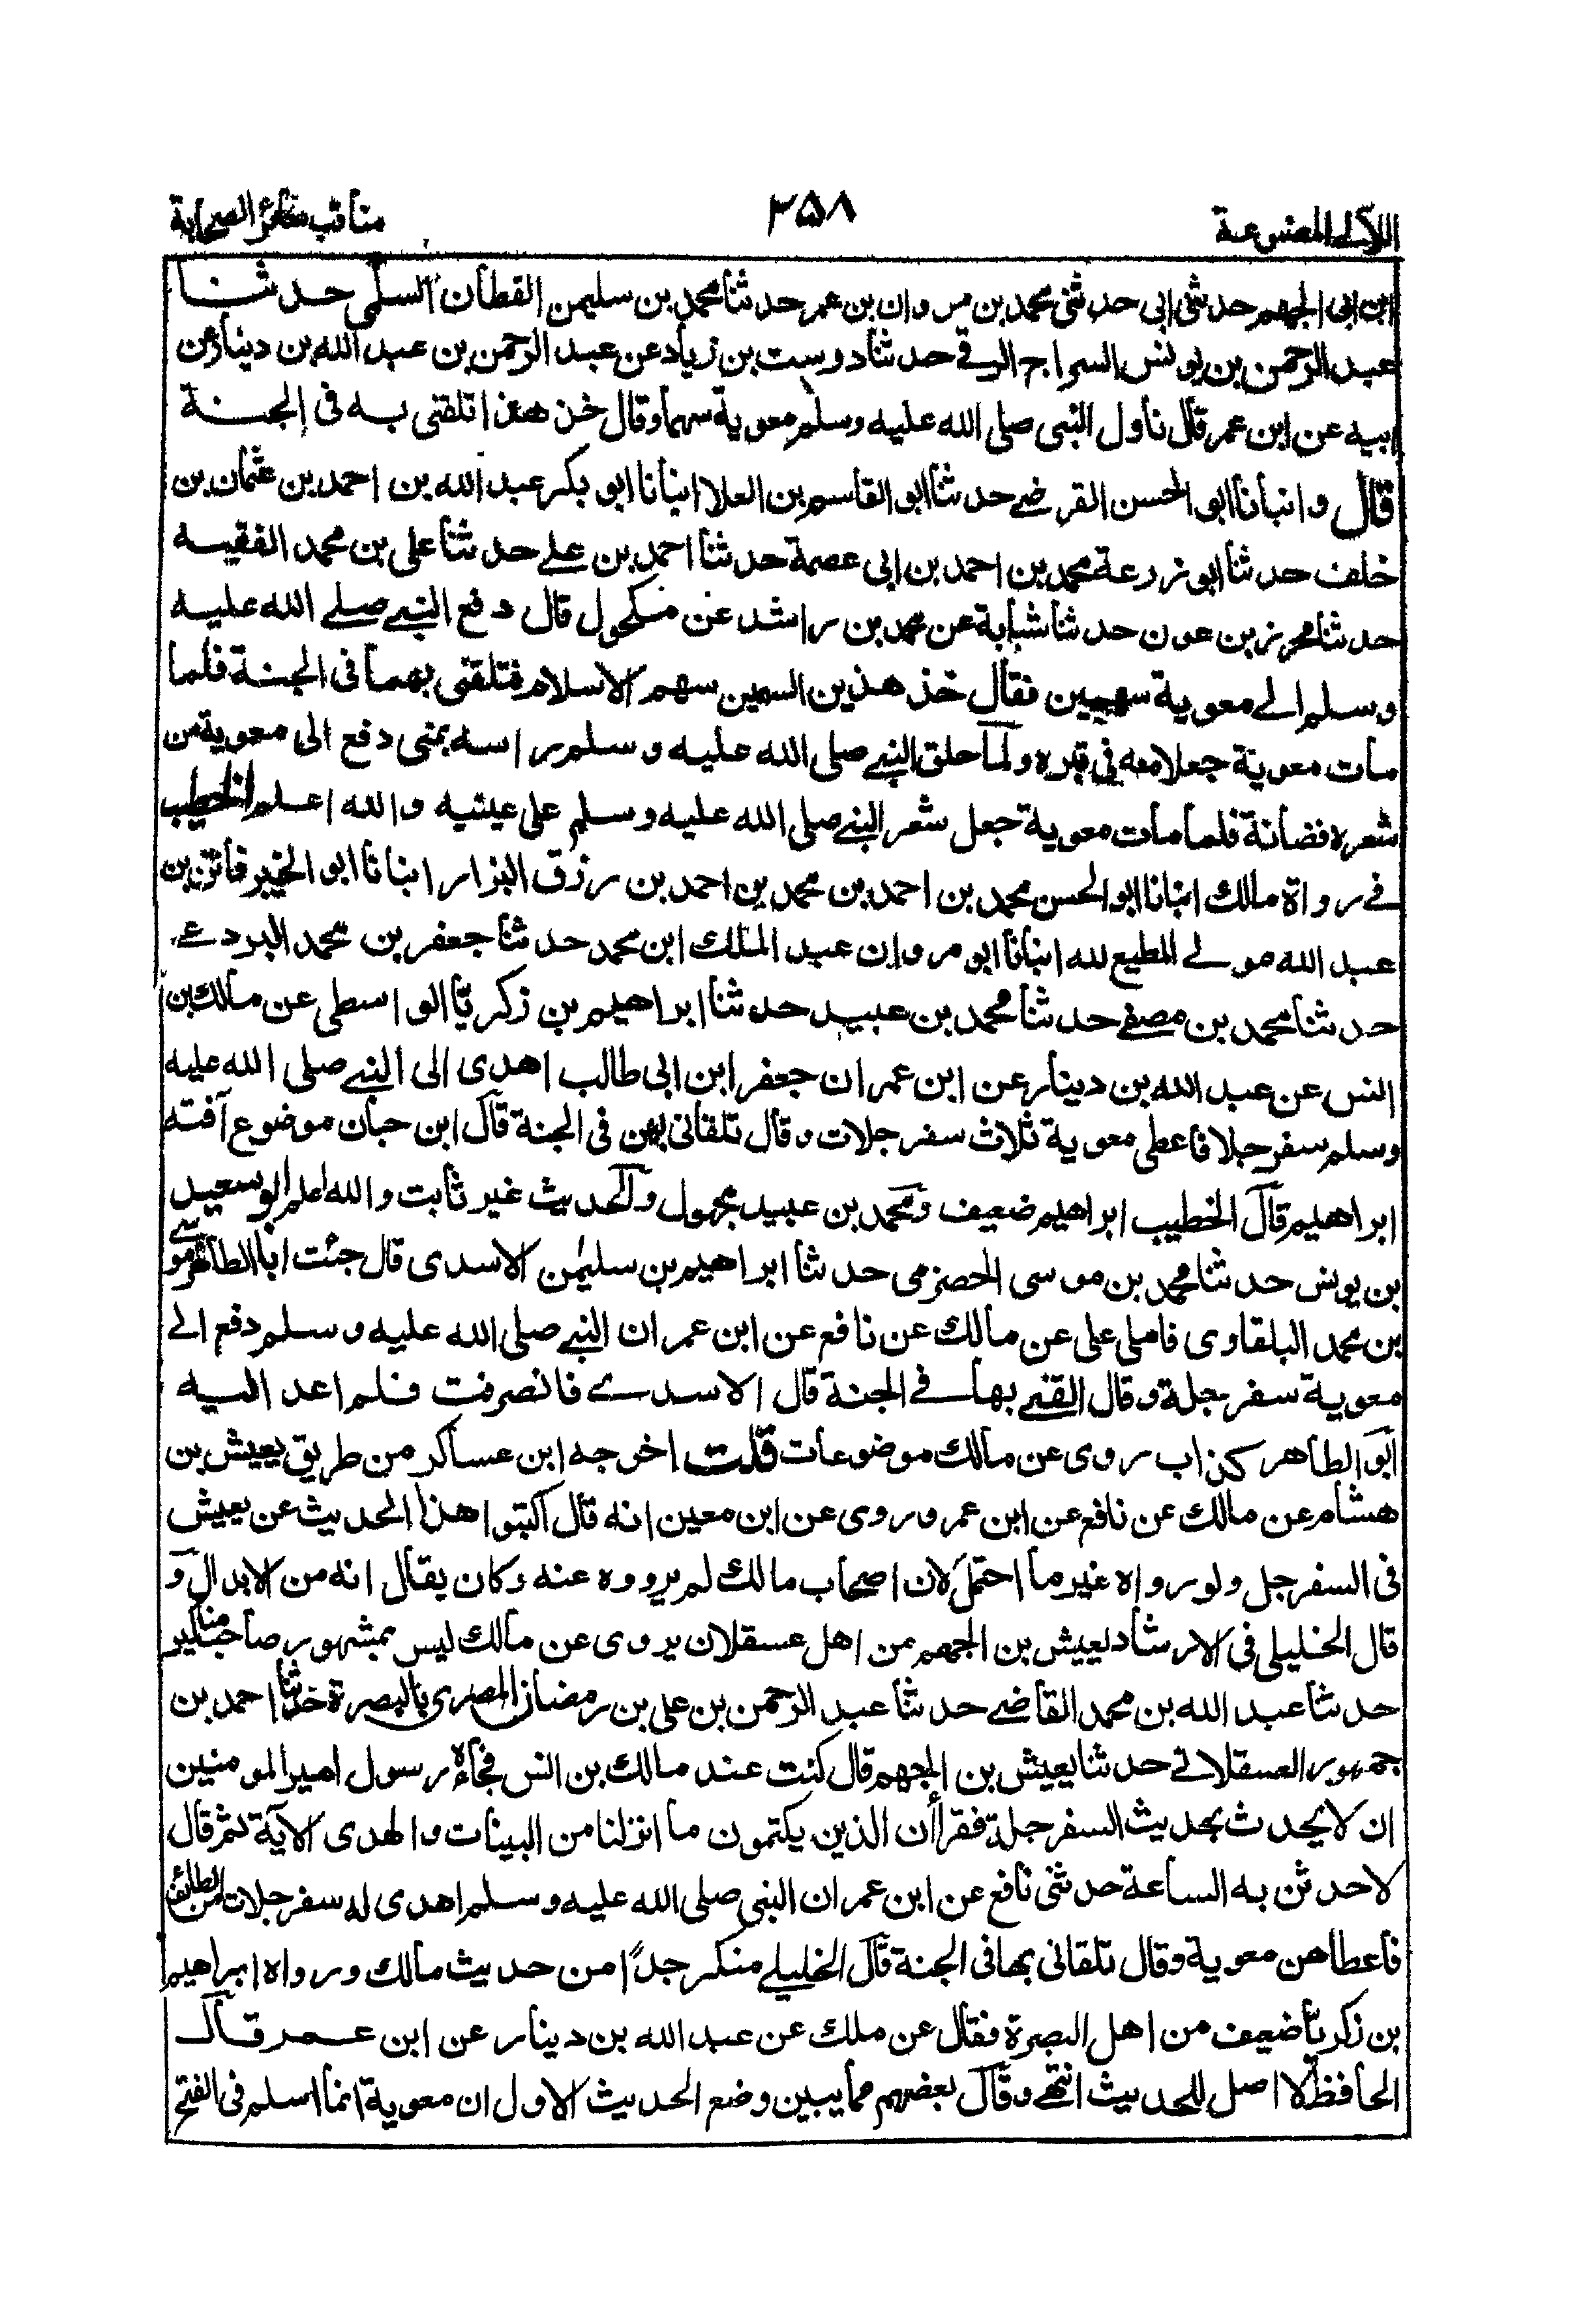 اللآلے المصنوعة
٢٥٨
مناقب سائر الصحابة
ابن ابى الجهم حدثنى ابى حدثنى محمد بن مروان بن عمر حدثنا محمد بن سليمن القطان السلمى حدثنا
عبد الرحمن بن يونس السراج الرقى حدثنا دوست بن زياد عن عبد الرحمن بن عبد الله بن دينار عن
ابيه عن ابن عمر قال ناول النبى صلى الله عليه وسلم معوية سهما وقال خذ هذا تلقنى به فى الجنة
قال وانبأنا ابو الحسن القرضے حدثنا ابو القاسم بن العلا انبأنا ابو بكر عبد الله بن احمد بن عثمان بن
خلف حدثنا ابو زرعة محمد بن احمد بن ابى عصمة حدثنا احمد بن علے حدثنا على بن محمد الفقيه
حدثنا محرز بن عون حدثنا شبابة عن محمد بن راشد عن مكحول قال دفع النبے صلے الله عليه
وسلم الے معوية سهمين فقال خذ هذين السهمين سهم الاسلام فتلقنى بهما فى الجنة فلما
مات معوية جعلا معه فى قبره ولما حلق النبے صلى الله عليه وسلم راسه بمنى دفع الى معوية من
شعره فضانة فلما مات معوية جعل شعر النبے صلى الله عليه وسلم على عينيه والله اعلم الخطيب
فے رواة مالك انبانا ابو الحسن محمد بن احمد بن محمد بن احمد بن رزق البزار انبانا ابو الخير فاتن بن
عبد الله مولے المطيع لله انبأنا ابو مروان عبد الملك ابن محمد حدثنا جعفر بن محمد البردعے
حدثنا محمد بن مصفے حدثنا محمد بن عبيد حدثنا ابراهيم بن زكريا الواسطى عن مالك بن
انس عن عبد الله بن دينار عن ابن عمر ان جعفر ابن ابى طالب اهدى الى النبے صلى الله عليه
وسلم سفرجلا فاعطى معوية ثلاث سفرجلات وقال تلقانى بهن فى الجنة قال ابن حبان موضوع آفته
ابراهيم قال الخطيب ابراهيم ضعيف ومحمد بن عبيد مجهول والحديث غير ثابت والله اعلم ابو سعيد
بن يونس حدثنا محمد بن موسى الحضرمى حدثنا ابراهيم بن سليمن الاسدى قال جئت ابا الطاهر موسے
بن محمد البلقاوى فاملى على عن مالك عن نافع عن ابن عمر ان النبے صلى الله عليه وسلم دفع الے
معوية سفرجلة وقال القنے بها فے الجنة قال الاسدے فانصرفت فلم اعد اليه
ابو الطاهر كذاب روى عن مالك موضوعات قلت اخرجه ابن عساكر من طريق يعيش بن
هشام عن مالك عن نافع عن ابن عمر وروى عن ابن معين انه قال اكتبوا هذا الحديث عن يعيش
فى السفرجل ولو رواه غير ما احتمل لان اصحاب مالك لم يرووه عنه وكان يقال انه من الابدال و
قال الخليلى فى الارشاد يعيش بن الجهم من اهل عسقلان يروى عن مالك ليس بمشهور صاحب مناكير
حدثنا عبد الله بن محمد القاضے حدثنا عبد الرحمن بن على بن رمضان المصرى بالبصرة حدثنا احمد بن
جمهور العسقلانے حدثنا يعيش بن الجهم قال كنت عند مالك بن انس فجاءه رسول امير المومنين
ان لا يحدث بحديث السفرجلة فقرأ ان الذين يكتمون ما انزلنا من البينات والهدى الآية ثم قال
لاحدثن به الساعة حدثنى نافع عن ابن عمر ان النبى صلى الله عليه وسلم اهدى له سفرجلات من الطائف
فاعطاهن معوية وقال تلقانى بها فى الجنة قال الخليلے منكر جدًا من حديث مالك ورواه ابراهيم
بن زكريا ضعيف من اهل البصرة فقال عن ملك عن عبد الله بن دينار عن ابن عمر قال
الحافظ لا اصل للحديث انتهے وقال بعضهم مما يبين وضع الحديث الاول ان معوية انما اسلم فى الفتح